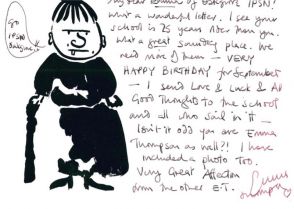 GO
IPSN
Oakgrove!!
My dear Emma of Oakgrove IPSN!
What a wonderful letter. I see your
school is 25 years older than you.
What a great sounding place. We
need more of them — VERY
HAPPY BIRTHDAY for September
— I send Love & Luck & All
Good Thoughts to the school
and all who sail in it —
Isn't it odd you are Emma
Thompson as well?! I have
included a photo too.
Very Great Affection
from the other E.T.
Emma
Thompson